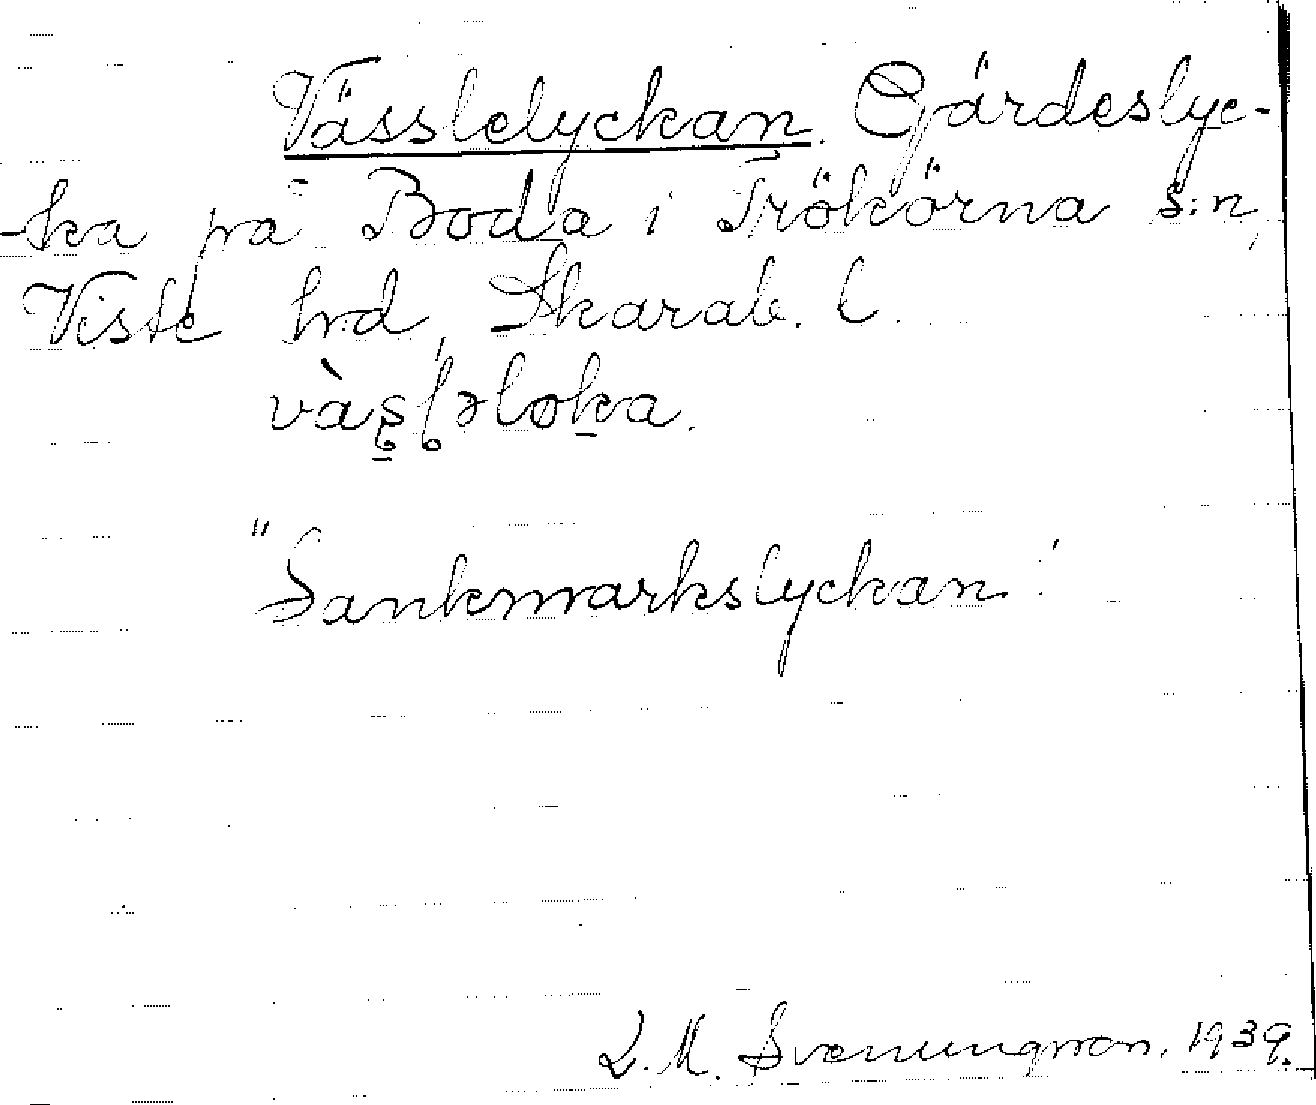 Vässlelyckan. Gärdeslyc-
-ka på Boda i Trökörna s:n,
Viste hrd, Skarab. l.
vàs̱ləloḵa.
"Sankmarkslyckan".
L. M. Svenungsson. 1939.